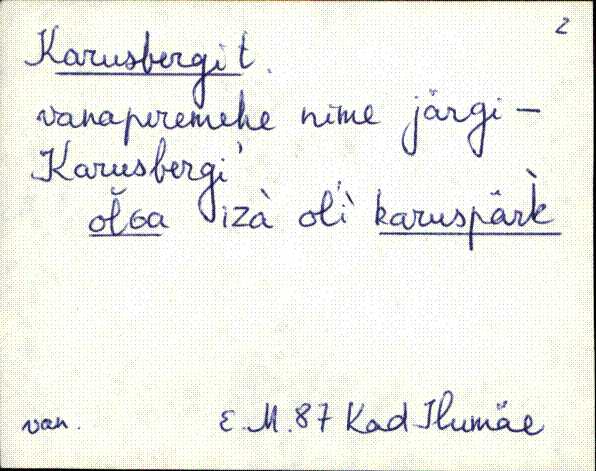 2
Karusbergi t.
vanaperemehe nime järgi —
Karusbergi'
izà oĺì karuspäŕk̀
van. E. M. 87 Kad Ilumäe